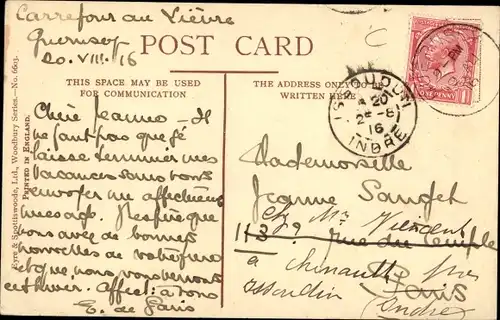 Carrefour au Lièvre
Guernsey
20.VIII.16
POST CARD
THIS SPACE MAY BE USED
FOR COMMUNICATION
THE ADDRESS ONLY TO BE
WRITTEN HERE
Eyre & Spottiswoode, Ltd., Woodbury Series.—No. 6603.
PRINTED IN ENGLAND.
Chère Jeanne - Il
ne faut pas que je
laisse terminer mes
vacances sans vous
envoyer un affectueux
message. J'espère que
vous avez de bonnes
nouvelles de votre frère
et que nous vous verrons
cet hiver. Affect. à vous
E. de Paris
ISSOUDUN
20
16
INDRE
ONE PENNY
Mademoiselle
Jeanne
chez Mr Vincent
113 rue du Temple
Paris
à près
Issoudun
(Indre)